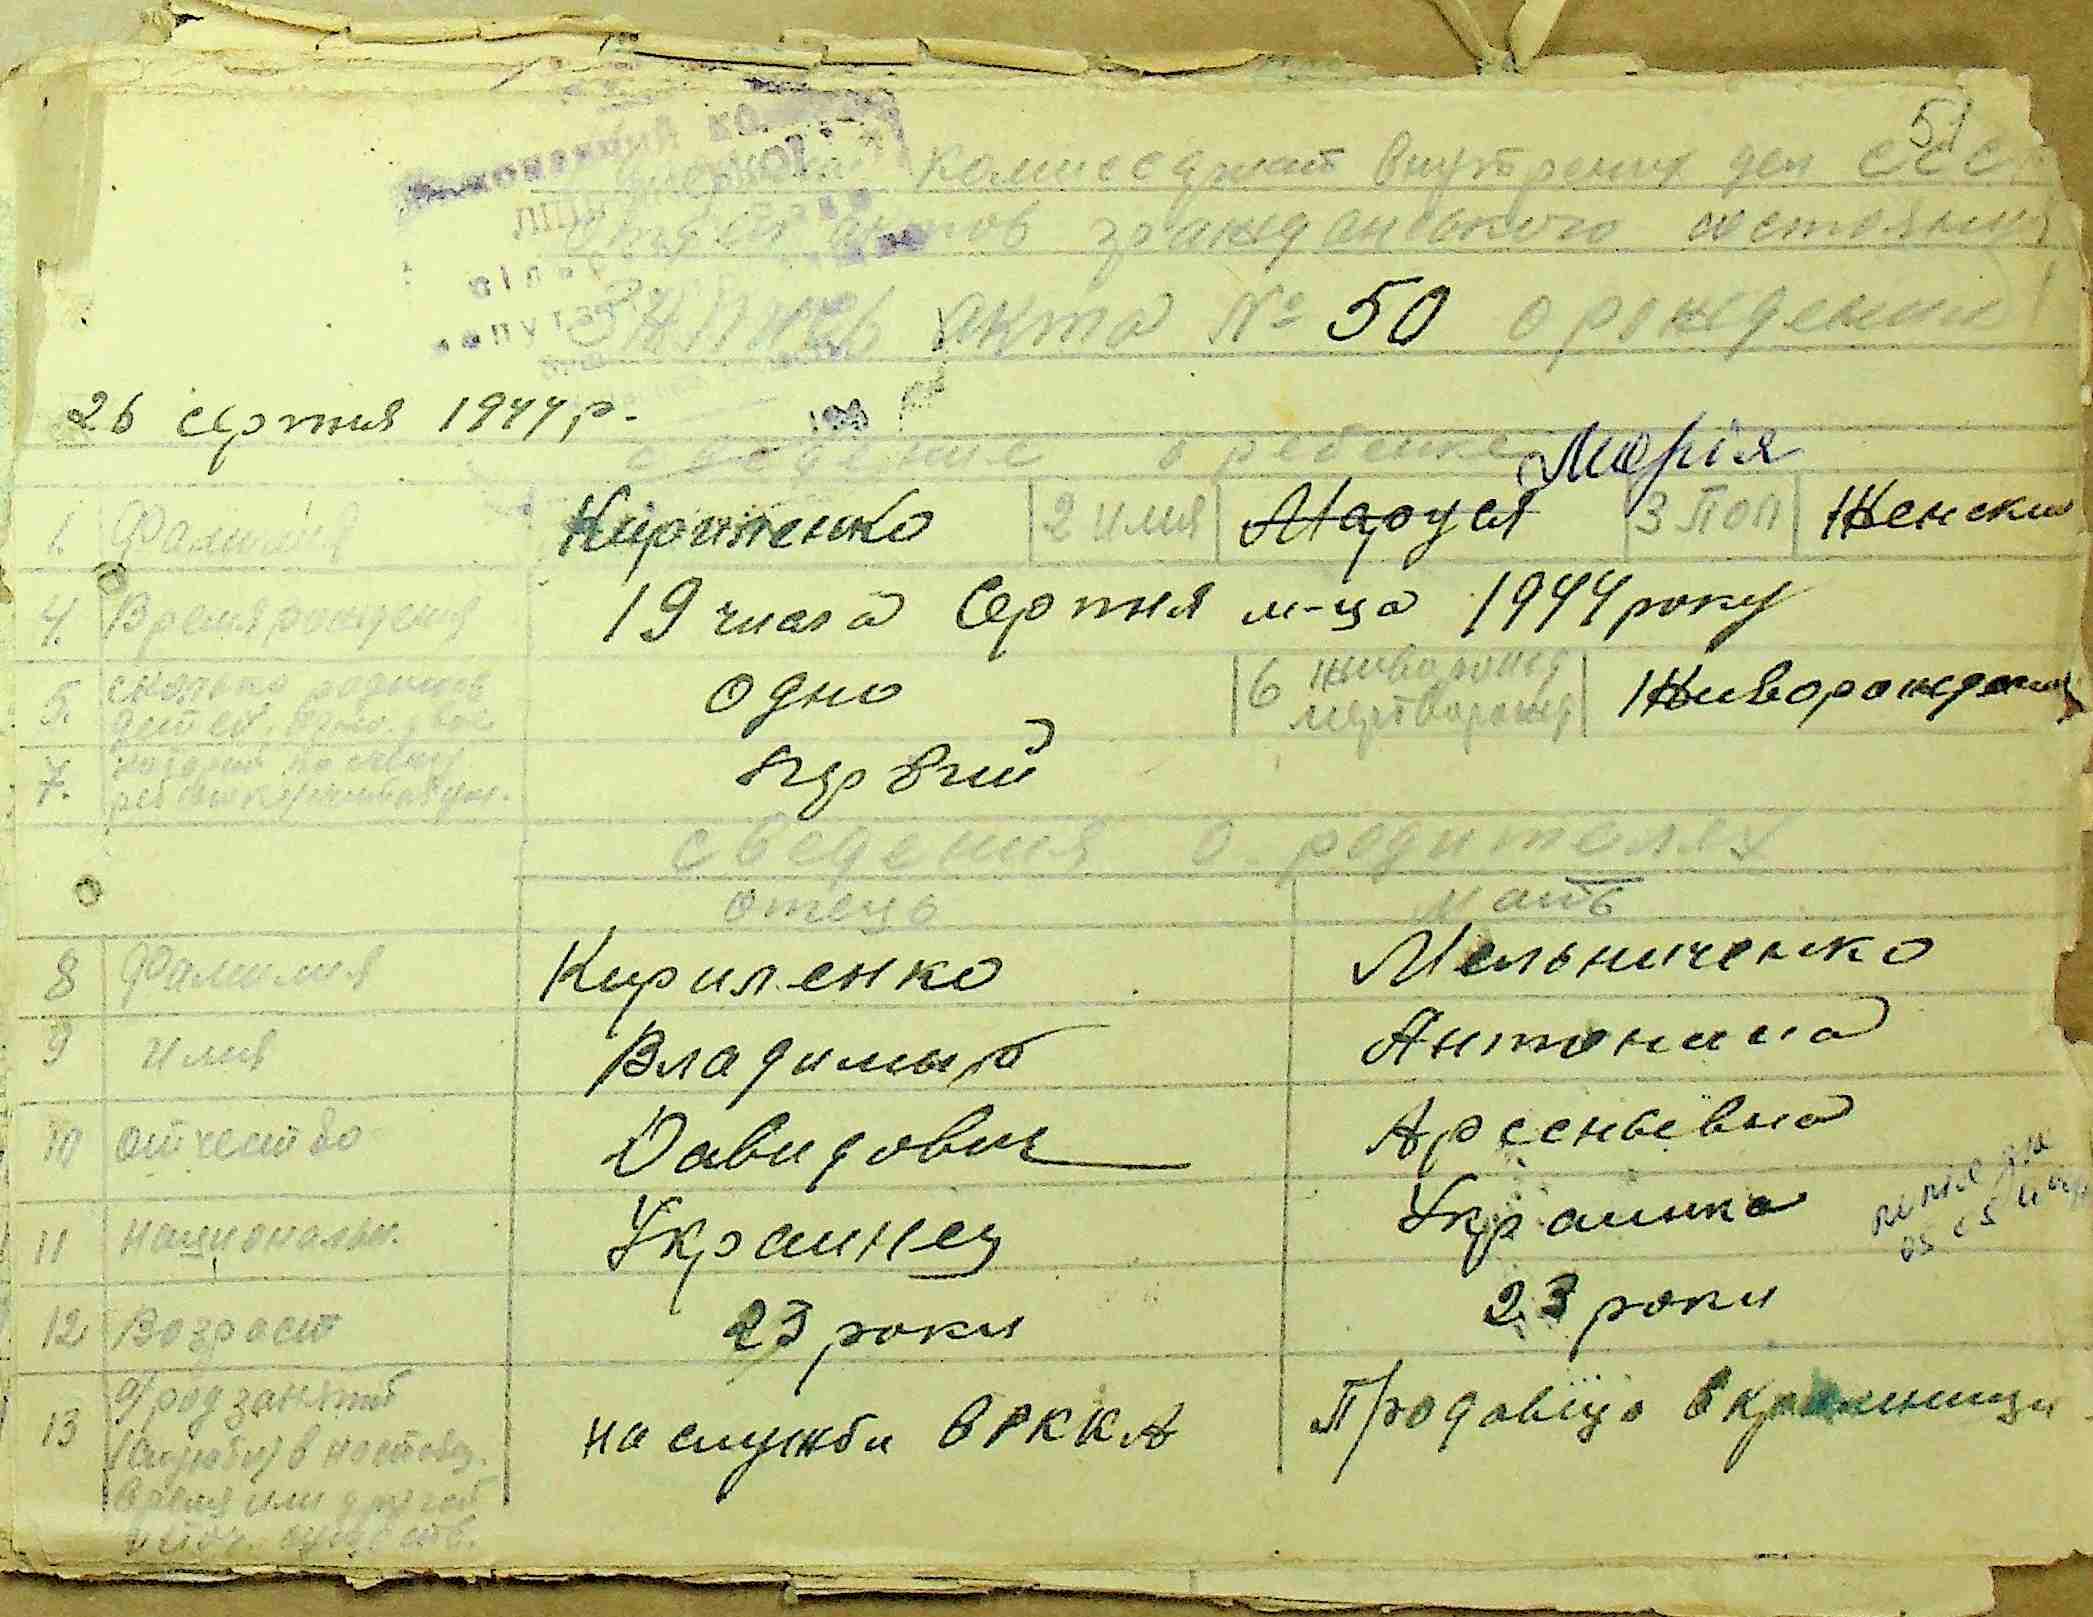 51
Комиссариат внутрених дел СССР
отдел актов гражданского состояния
Запись акта № 50 о рождении
26 серпня 1944 р.
сведение о ребенке Марія
1. Фамилия Кириленко 2 имя Маруся 3 Пол Женский
4. Время рождения 19 числа Серпня м-ца 1944 року
5. сколько родилось детей. одно, двое одно 6 живорожд мертворожд Живорожден
7. ребенок первий
сведения о родителях
отець мать
8 Фамилия Кириленко Мельниченко
9 имя Владимыр Антонина
10 отчество Давидович Арсеньевна
11 национальн. Украинец Украинка
12 Возраст 23 роки 23 роки
13 а/ род занятий на служби в РККА Продавіцо в крамници
(службы) в настоящ.
время или другой
источ. существ.